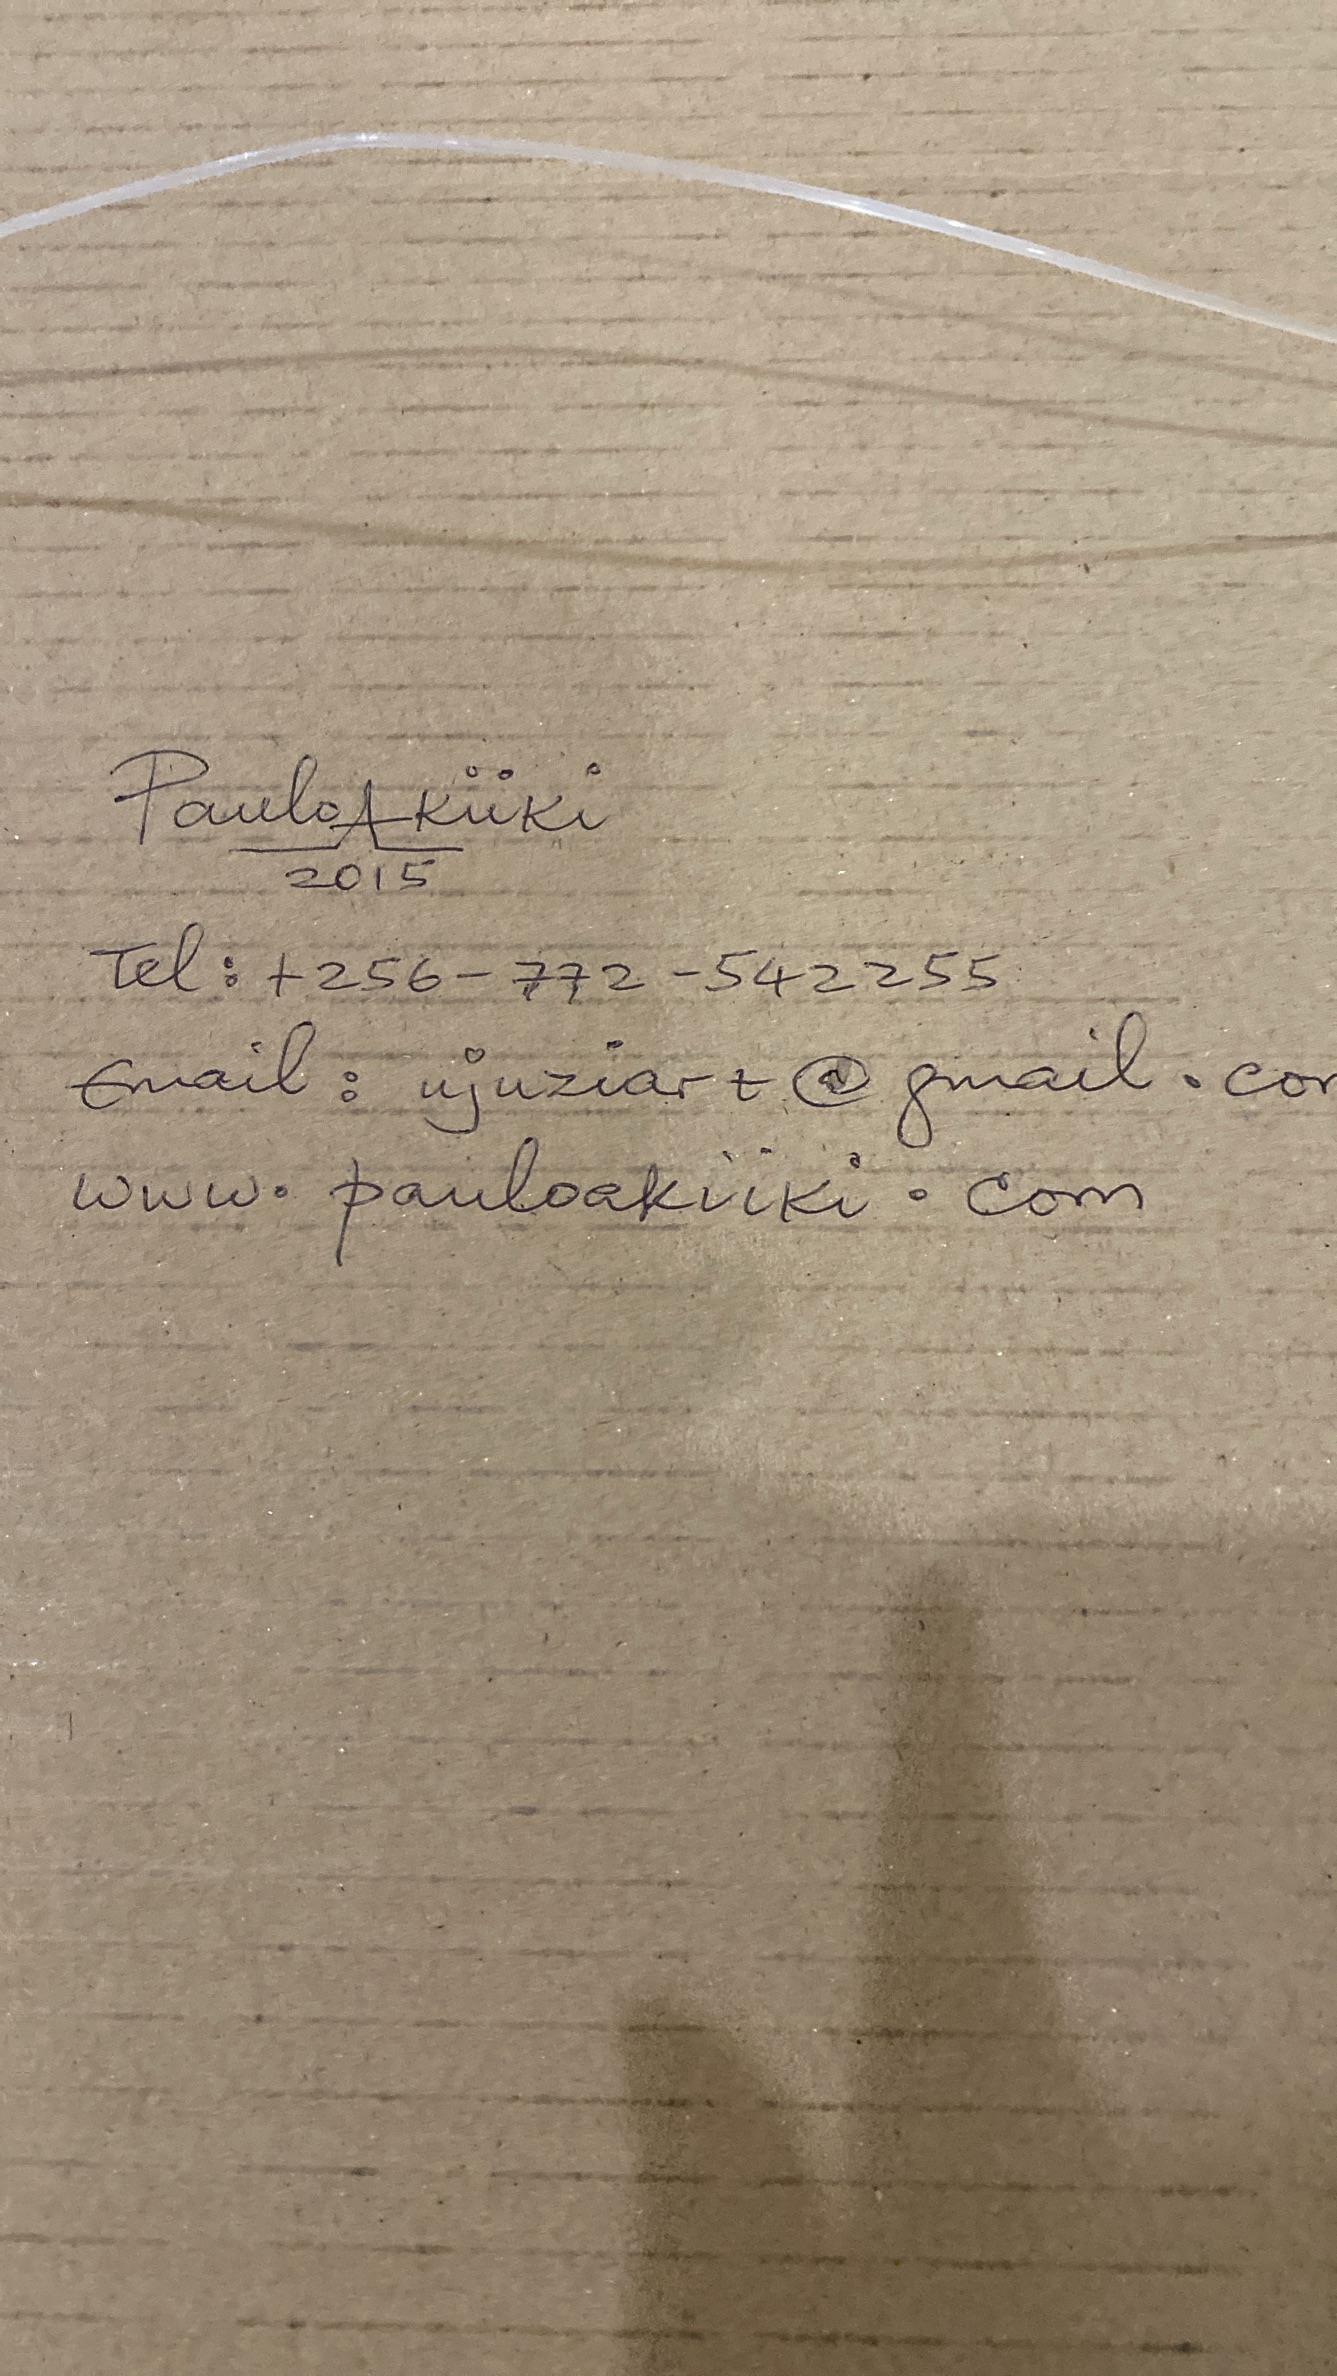 Paulo Akiiki
2015
Tel: +256-772-542255
Email: ujuziart@gmail.com
www.pauloakiiki.com